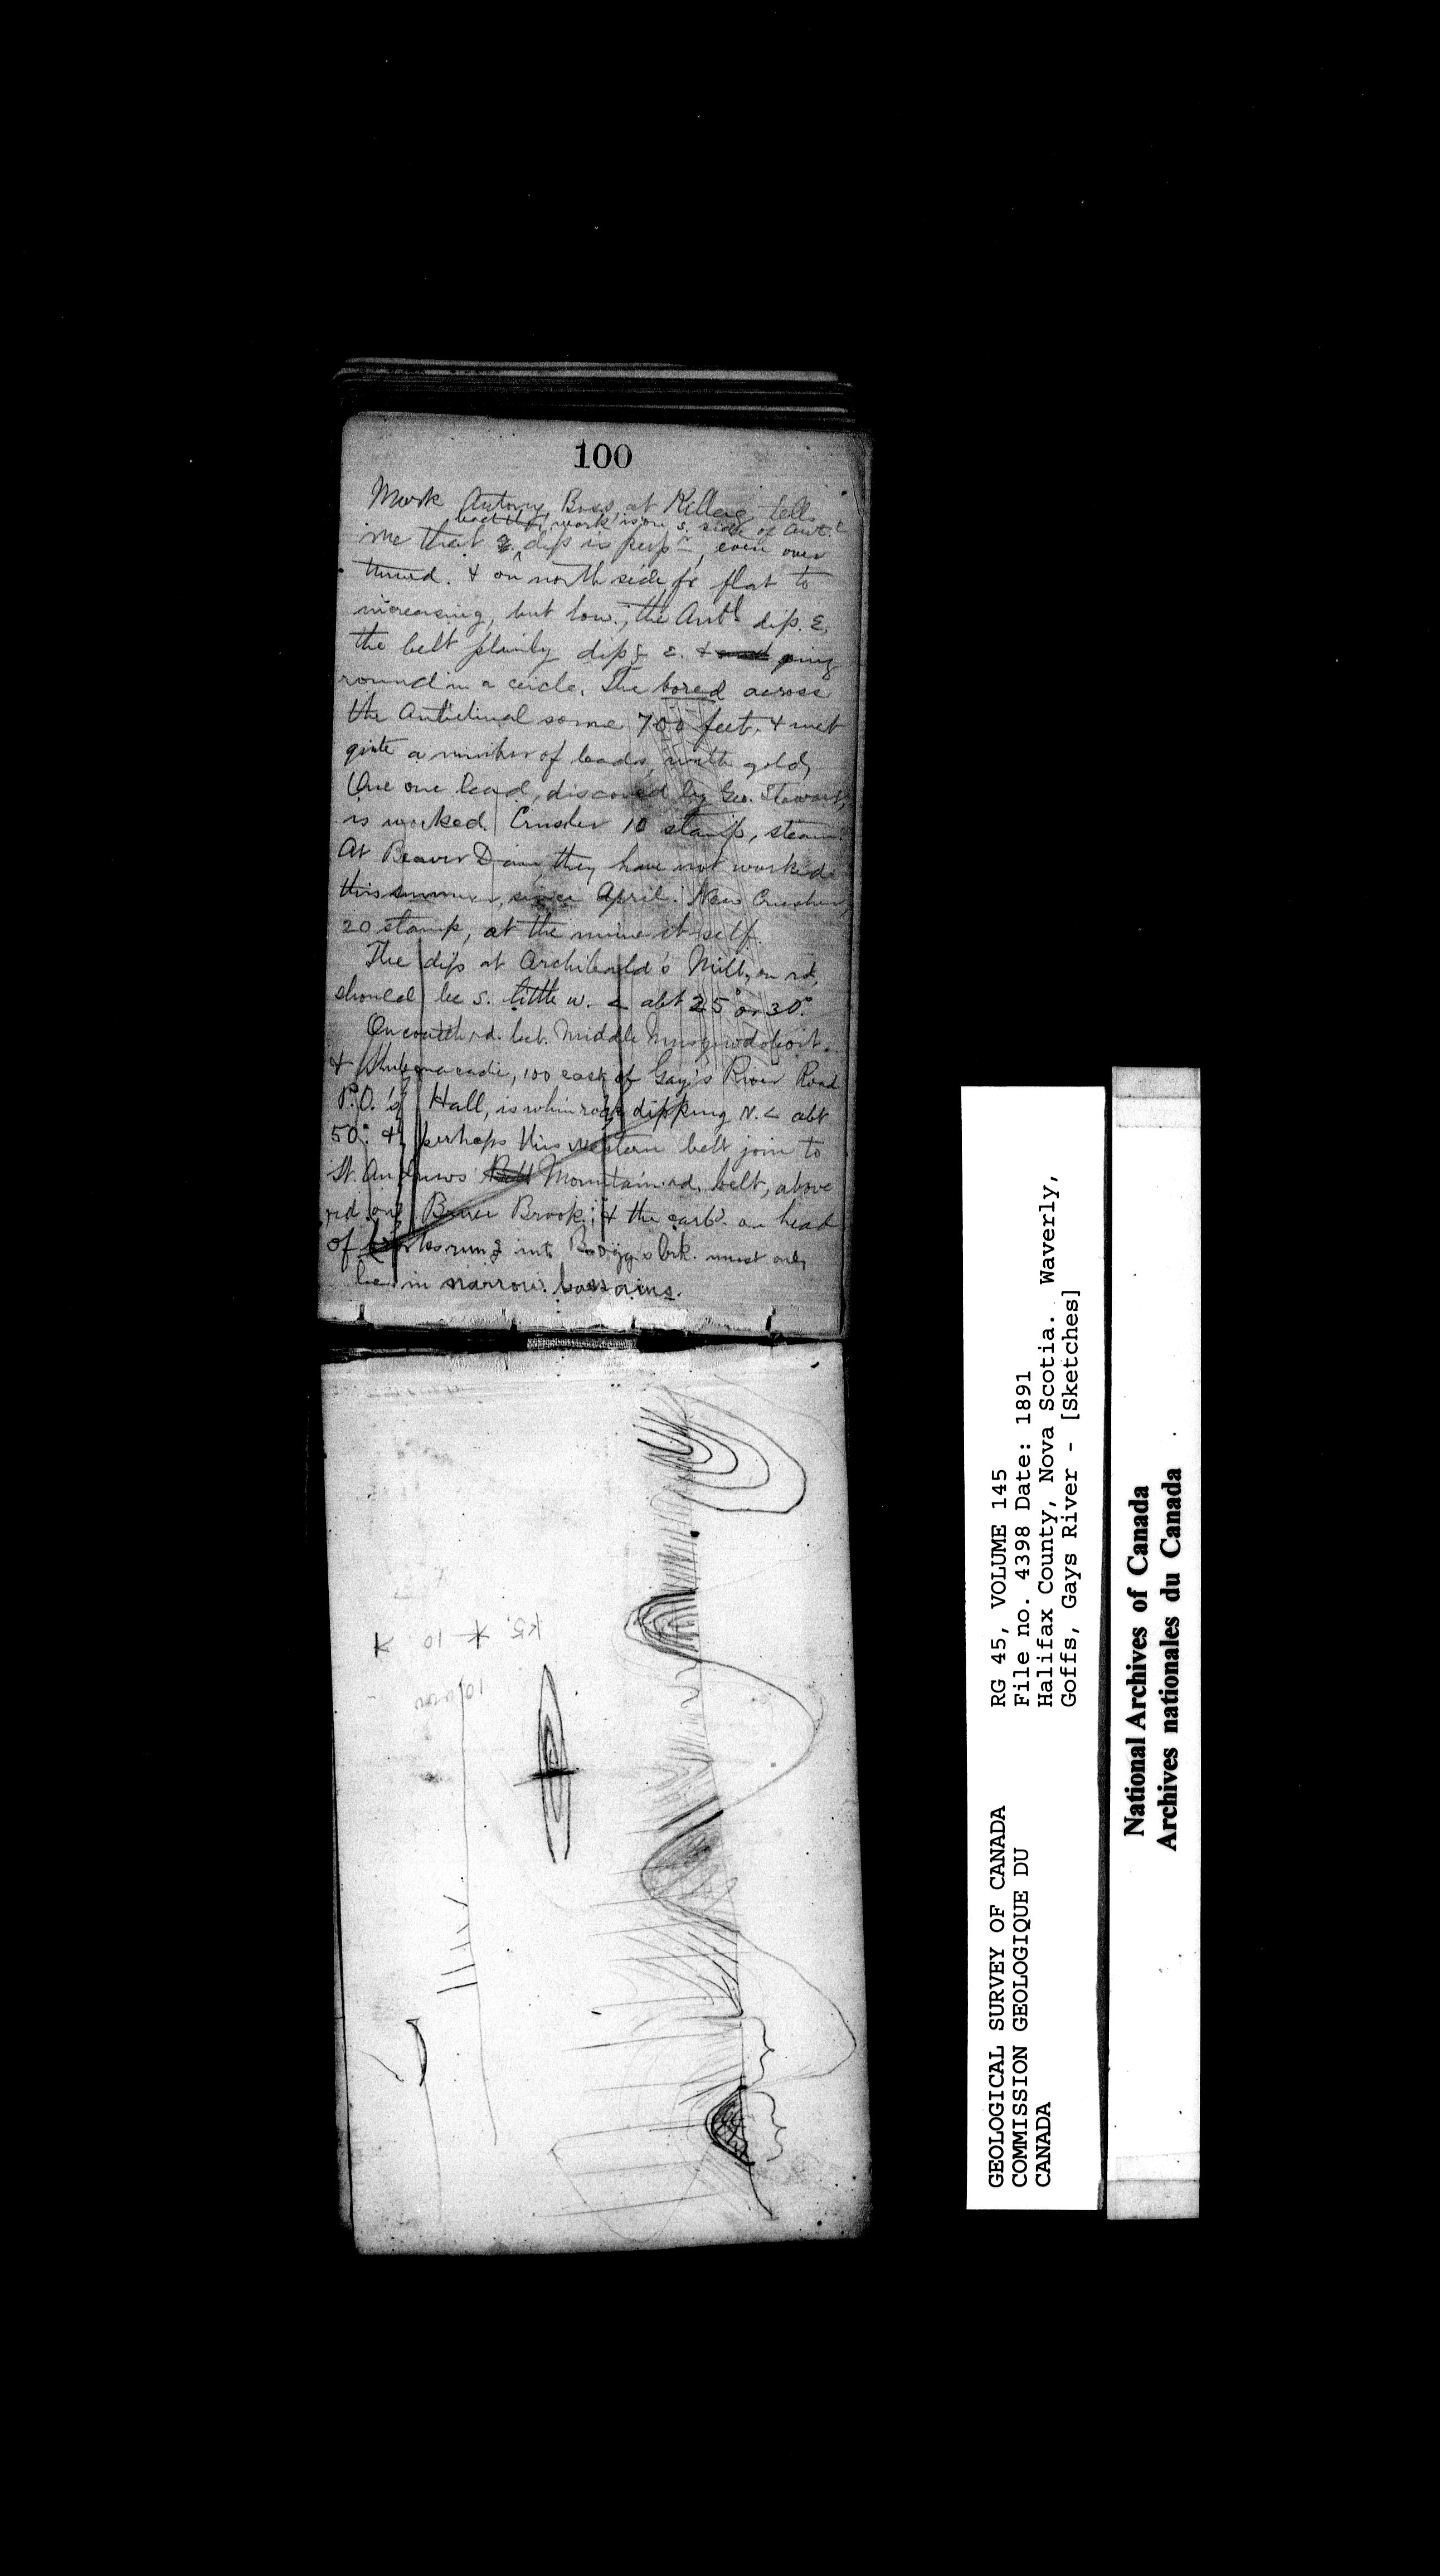 100
Mark Antony, Boss, at Killag, tells
work is on s. side of Ant.l
me that dip is perp.r, even over
turned. & on north side fr flat to
increasing, but low; the Antl dip. E.
the belt plainly dip.g E. & going
round in a circle. The bored across
the Anticlinal some 700 feet. & met
quite a number of leads, with gold,
One one lead, discovered by Geo. Stewart,
is worked. Crusher 10 stamp, steam.
At Beaver Dam they have not worked
this summer, since April. New Crusher,
20 stamp, at the mine itself.
The dip at Archibald's Mill, on rd,
should be s. little w. < abt 25° or 30°.
On rd. bet. Middle Musquodoboit.
& Shubenacadie, 100 east of Gay's River Road
P.O. & Hall, is whin rock dipping N. < abt
50°. & perhaps this western belt join to
St. Andrews Mountain rd. belt, above
rd. on Brook; & the carb. on head
of run.g into brk. must only
be in narrow bassains.
K5.
10
10,000
RG 45, VOLUME 145
File no. 4398 Date: 1891
Halifax County, Nova Scotia. Waverly,
Goffs, Gays River - [Sketches]
GEOLOGICAL SURVEY OF CANADA
COMMISSION GEOLOGIQUE DU
CANADA
National Archives of Canada
Archives nationales du Canada